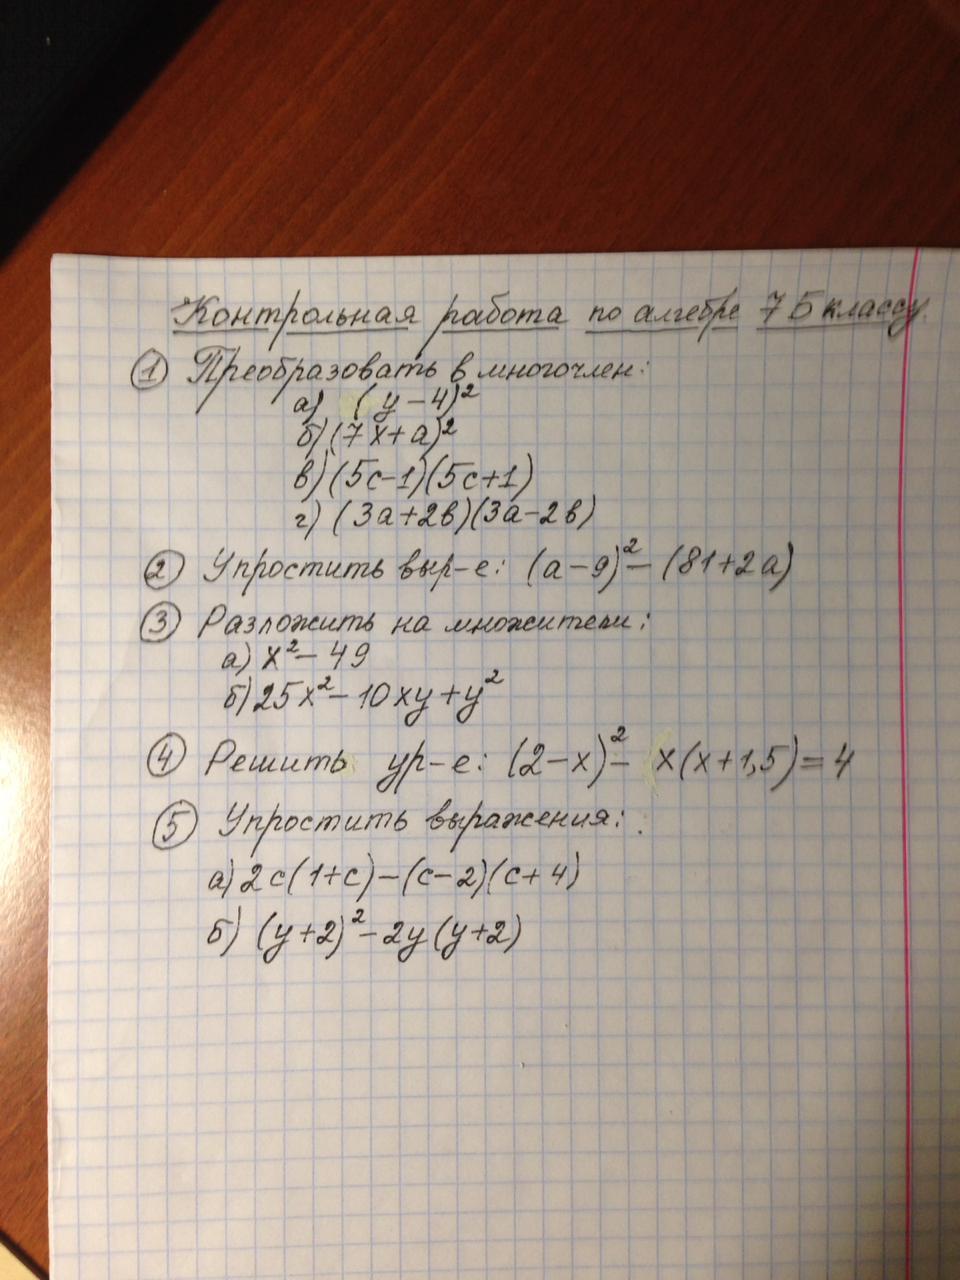 Контрольная работа по алгебре 7 Б классу.
① Преобразовать в многочлен:
а) (y-4)²
б) (7x+a)²
в) (5c-1)(5c+1)
г) (3a+2в)(3a-2в)
② Упростить выр-е: (a-9)²-(81+2a)
③ Разложить на множители:
а) x²-49
б) 25x²-10xy+y²
④ Решить ур-е: (2-x)²- x(x+1,5)=4
⑤ Упростить выражения:
а) 2c(1+c)-(c-2)(c+4)
б) (y+2)²-2y(y+2)